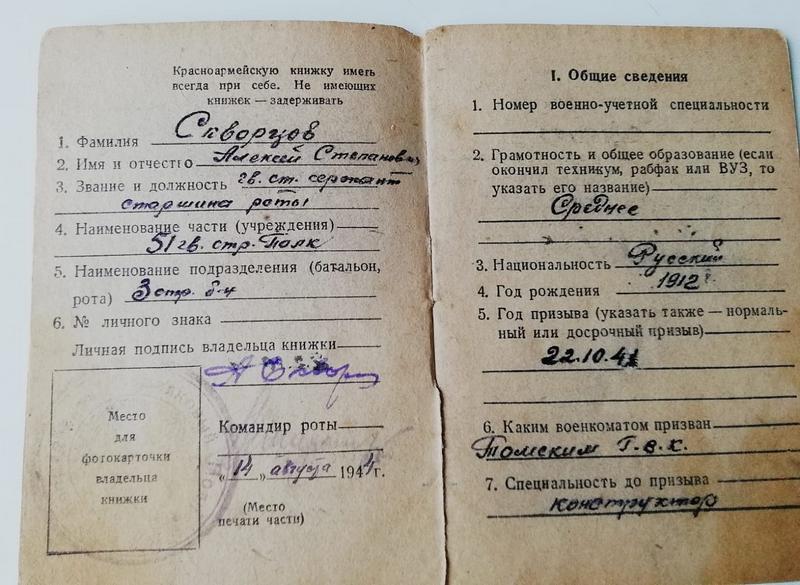 Красноармейскую книжку иметь
всегда при себе. Не имеющих
книжек — задерживать
1. Фамилия Скворцов
2. Имя и отчество Алексей Степанович
3. Звание и должность гв. ст. сержант
старшина роты
4. Наименование части (учреждения)
51 гв. стр. Полк
5. Наименование подразделения (батальон,
рота) 3 стр. б-н
6. № личного знака
Личная подпись владельца книжки
А Сквор
Место
для
фотокарточки
владельца
книжки
Командир роты
„14„ августа 1944 г.
(Место
печати части)
I. Общие сведения
1. Номер военно-учетной специальности
2. Грамотность и общее образование (если
окончил техникум, рабфак или ВУЗ, то
указать его название)
Среднее
3. Национальность Русский
4. Год рождения 1912 г
5. Год призыва (указать также — нормаль-
ный или досрочный призыв)
22.10.41
6. Каким военкоматом призван
Томским Г.В.К.
7. Специальность до призыва
конструктор